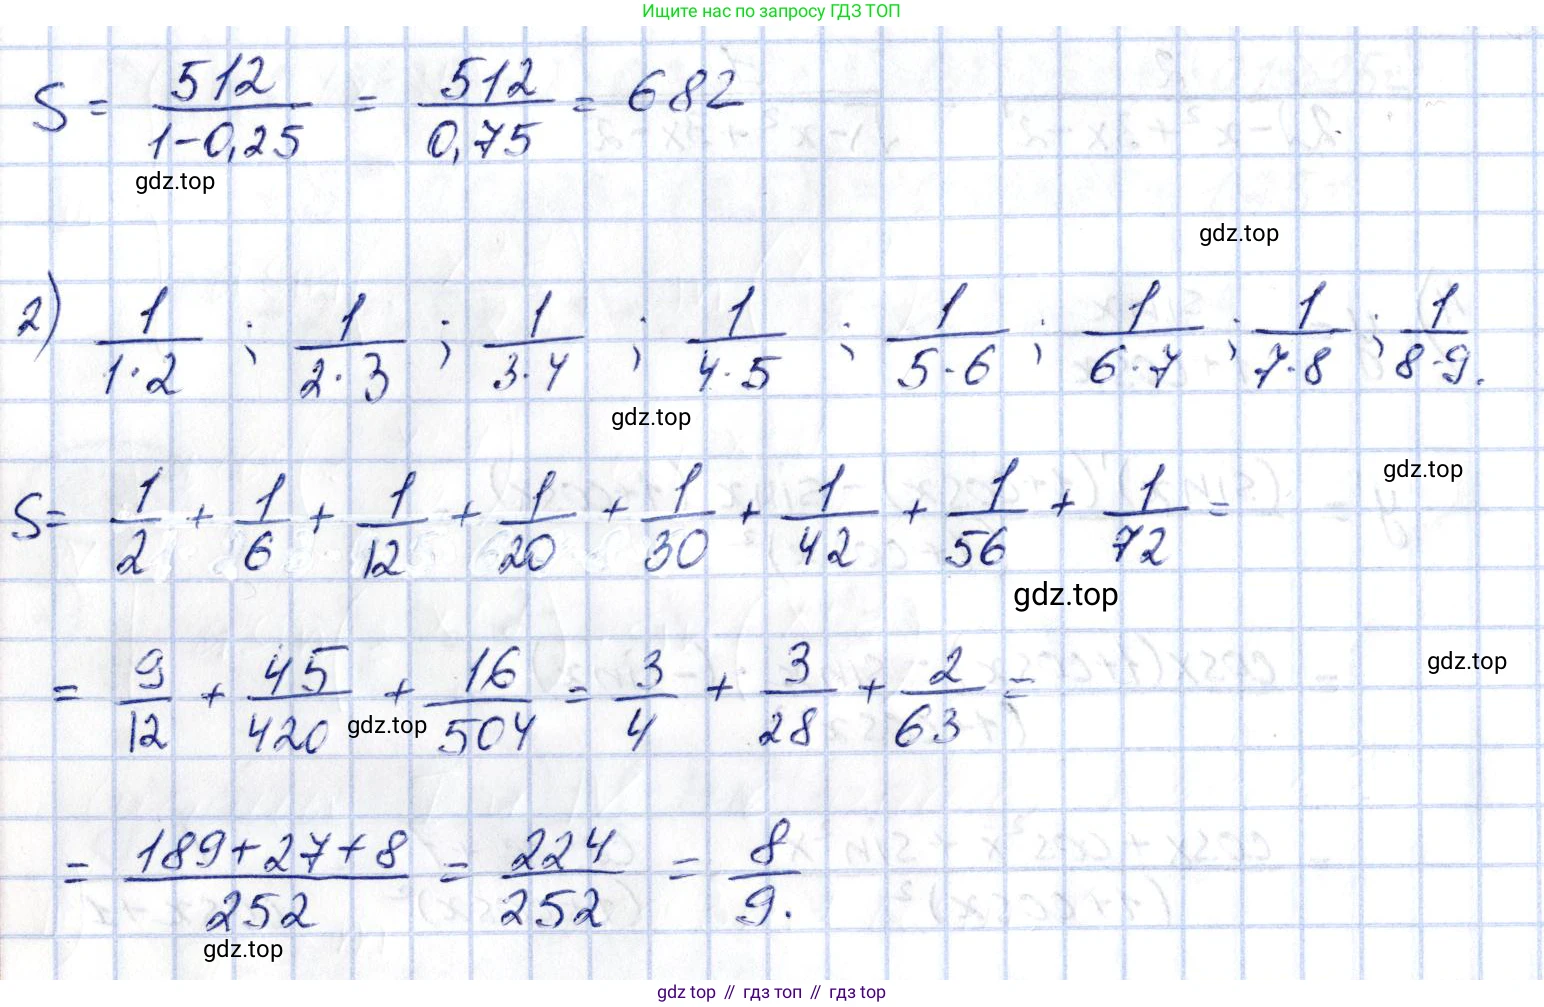 Ищите нас по запросу ГДЗ ТОП
S = 512/(1-0,25) = 512/0,75 = 682
gdz.top
gdz.top
2) 1/(1·2) ; 1/(2·3) ; 1/(3·4) ; 1/(4·5) ; 1/(5·6) ; 1/(6·7) ; 1/(7·8) ; 1/(8·9).
gdz.top
gdz.top
S = 1/2 + 1/6 + 1/12 + 1/20 + 1/30 + 1/42 + 1/56 + 1/72 =
gdz.top
gdz.top
= 9/12 + 45/420 + 16/504 = 3/4 + 3/28 + 2/63 =
gdz.top
= (189+27+8)/252 = 224/252 = 8/9.
gdz.top
gdz top // гдз топ // gdz top